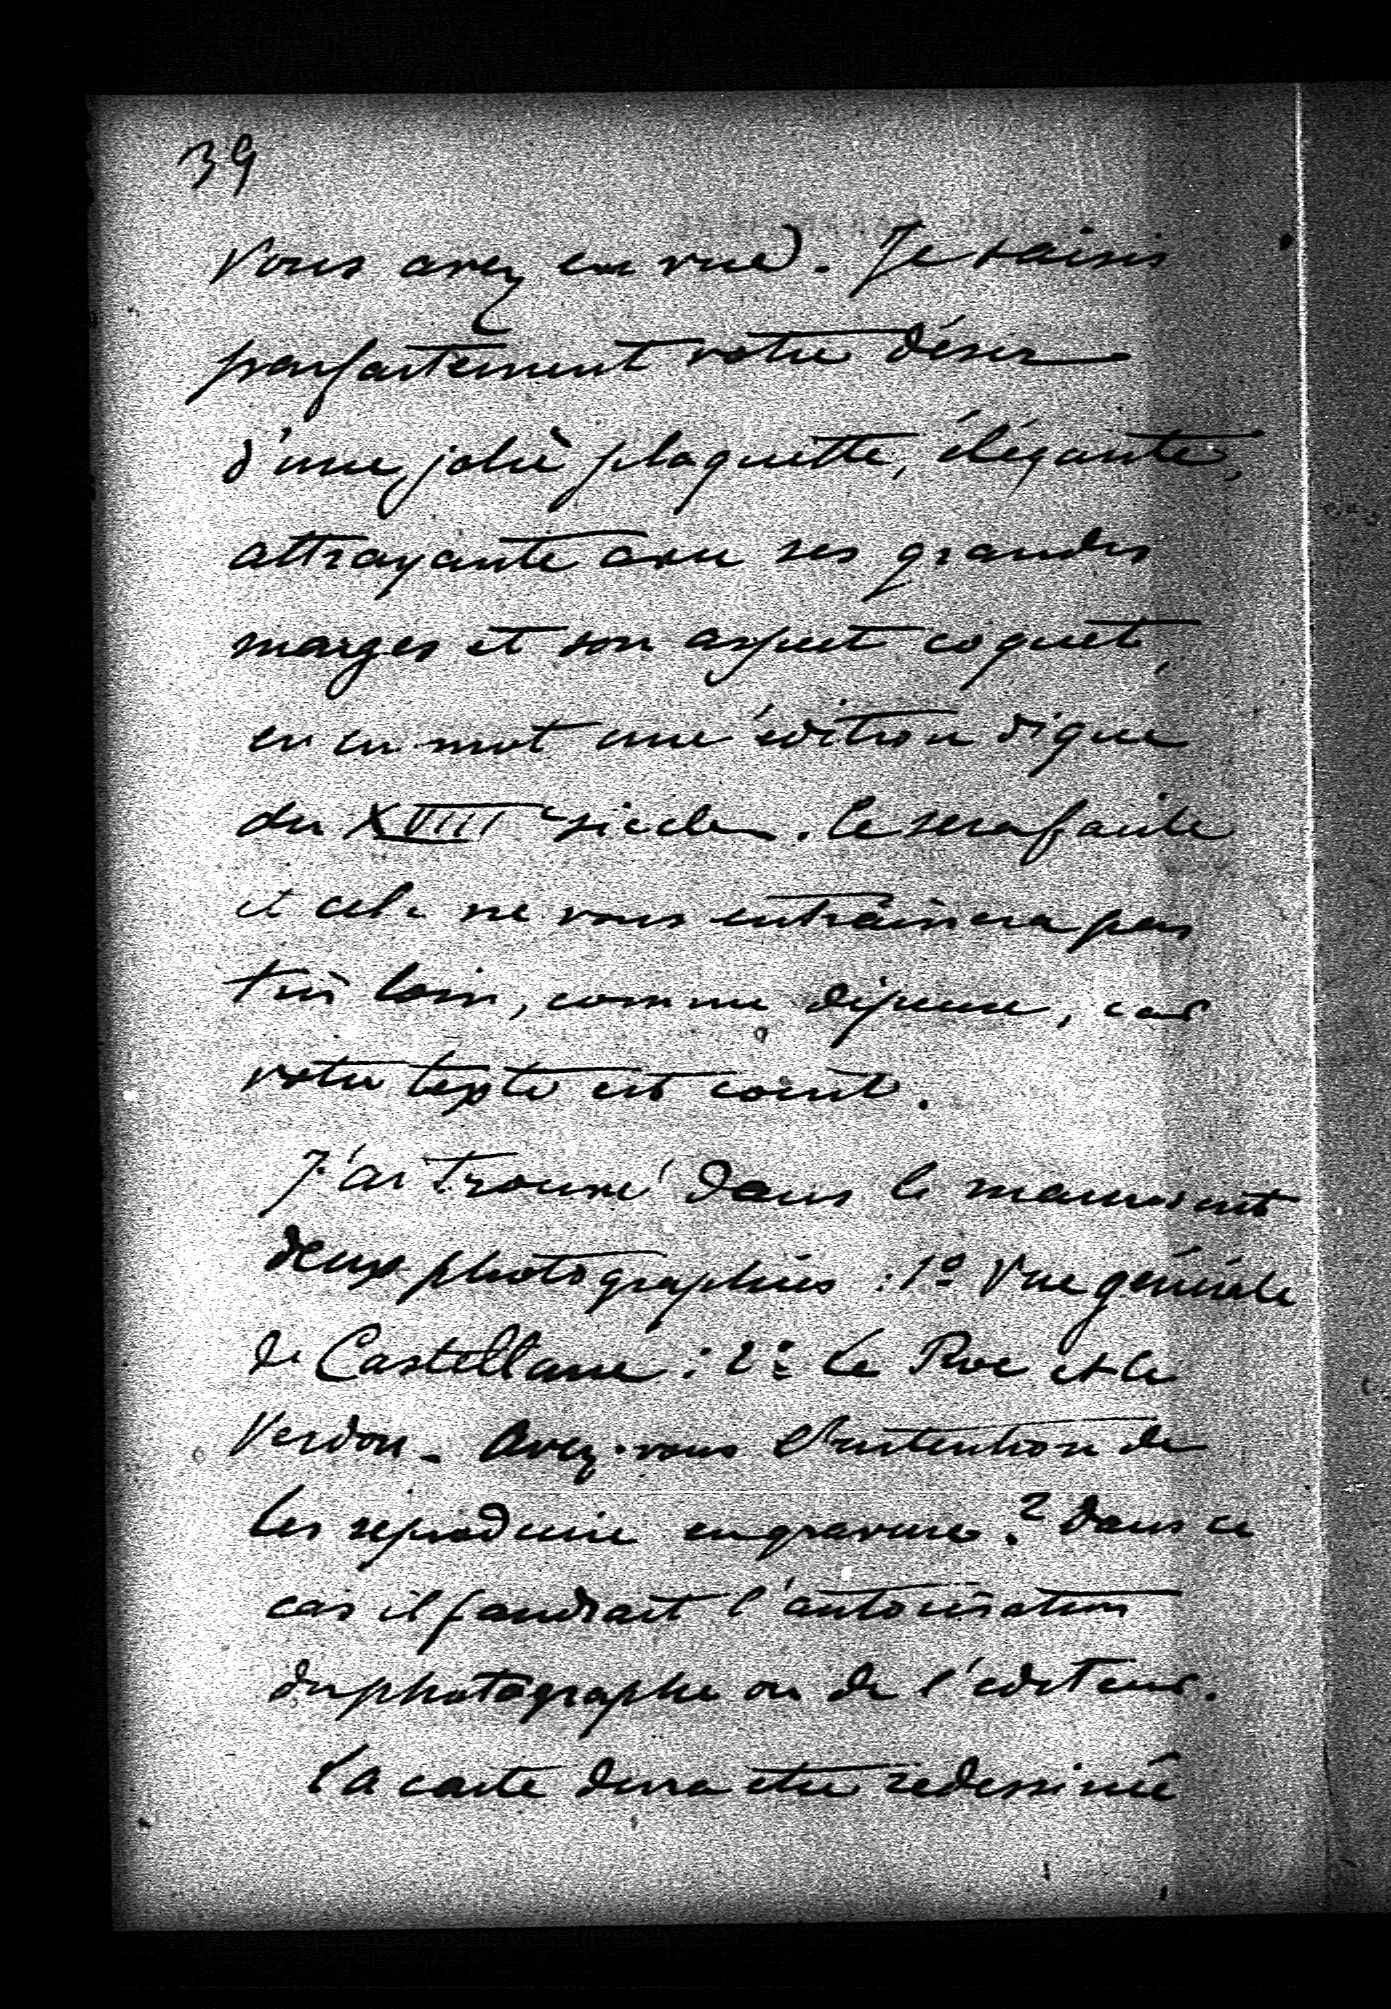 39
vous avez en vue. Je saisis
parfaitement votre désir
d'une jolie plaquette, élégante,
attrayante avec ses grandes
marges et son aspect coquet,
en un mot une édition digne
du XVIIIe siècle. Ce sera facile
et cela ne vous entrainera pas
très loin, comme dépense, car
votre texte est court.
J'ai trouvé dans le manuscrit
deux photographies : 1º Vue générale
de Castellane : 2º Le Roc et le
Verdon. Avez-vous l'intention de
les reproduire en gravures ? Dans ce
cas il faudrait l'autorisation
du photographe ou de l'éditeur.
La carte devra être redessinée